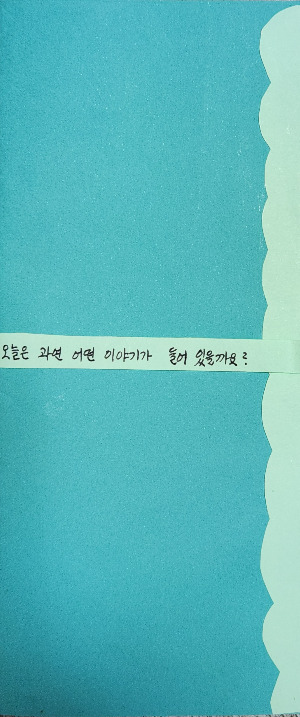 오늘은 과연 어떤 이야기가 들어 있을까요?